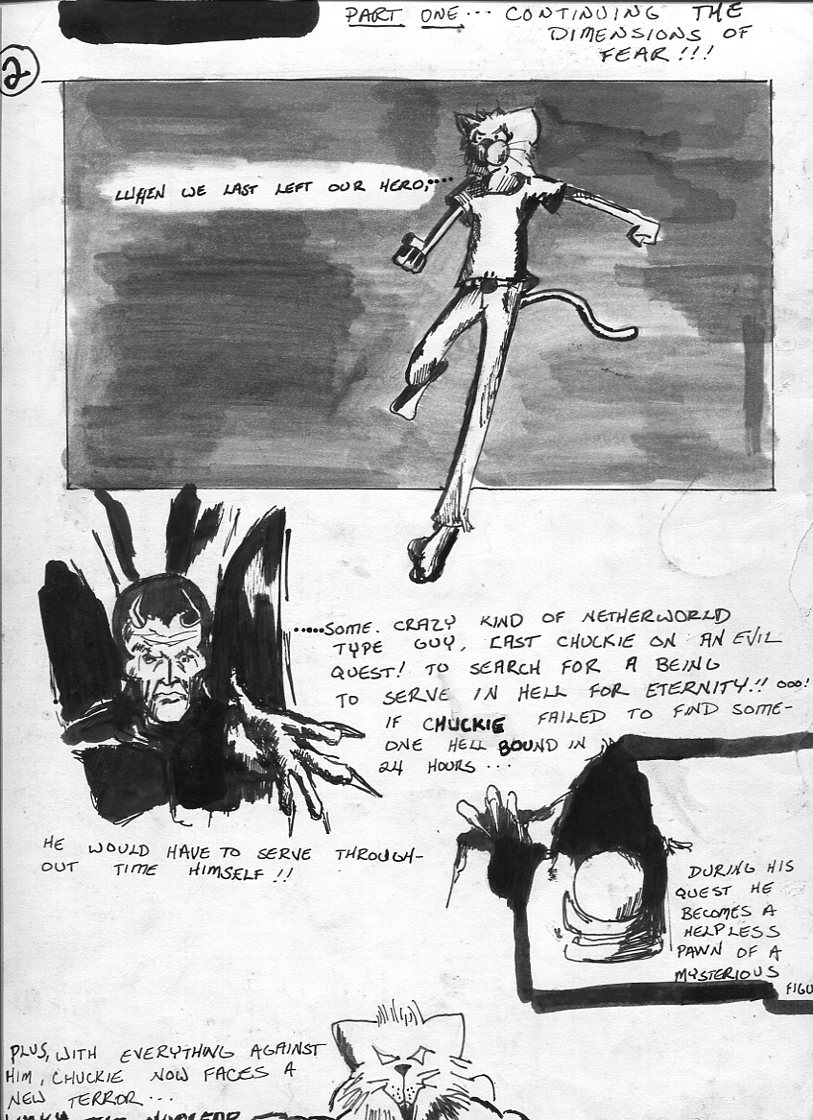 PART ONE... CONTINUING THE
DIMENSIONS OF
FEAR!!!
2
WHEN WE LAST LEFT OUR HERO,....
.....SOME. CRAZY KIND OF NETHERWORLD
TYPE GUY, CAST CHUCKIE ON AN EVIL
QUEST! TO SEARCH FOR A BEING
TO SERVE IN HELL FOR ETERNITY!! OOO!
IF CHUCKIE FAILED TO FIND SOME-
ONE HELL BOUND IN
24 HOURS...
HE WOULD HAVE TO SERVE THROUGH-
OUT TIME HIMSELF!!
DURING HIS
QUEST HE
BECOMES A
HELPLESS
PAWN OF A
MYSTERIOUS
FIGU
PLUS, WITH EVERYTHING AGAINST
HIM, CHUCKIE NOW FACES A
NEW TERROR...
THE NUCLEAR